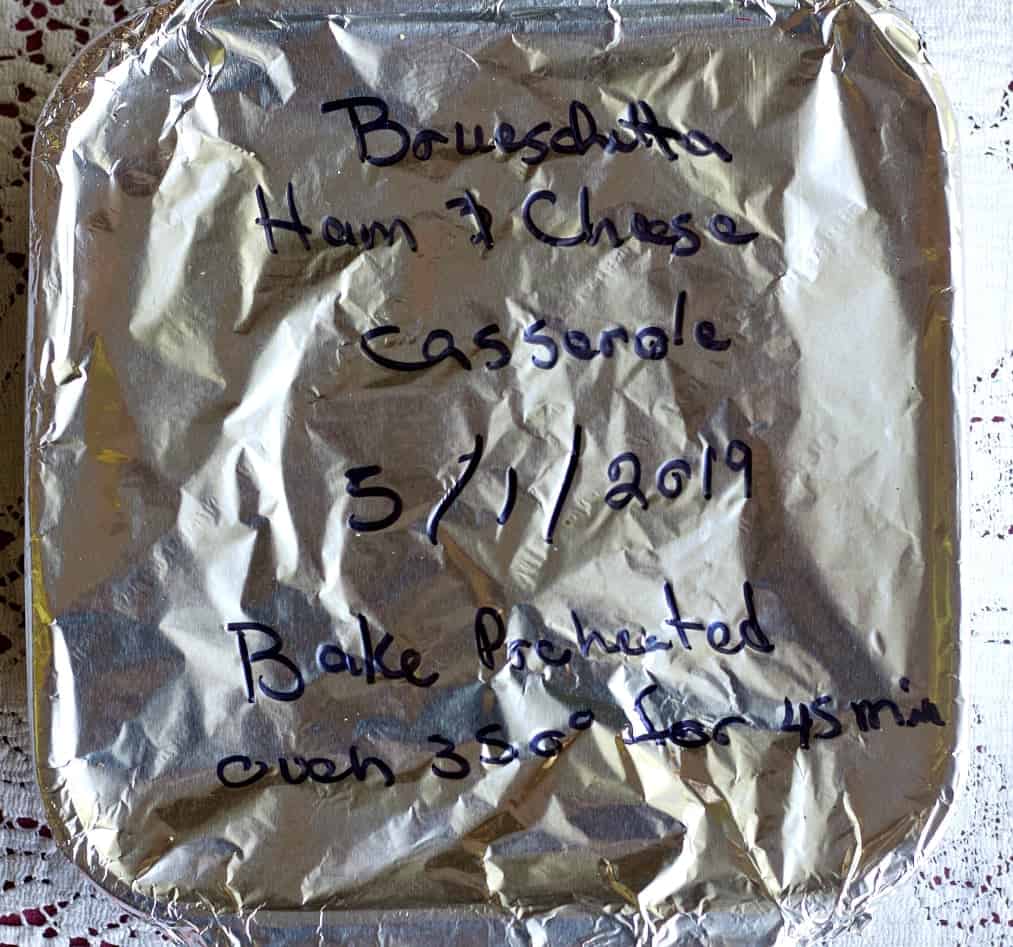 Brueschitta
Ham & Cheese
casserole
5/1/2019
Bake Preheated
oven 350° for 45 min